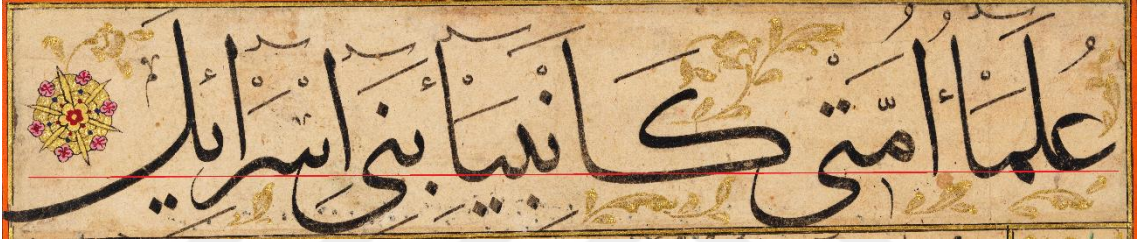 عُلَمَاءُ أُمَّتِي كَأَنْبِيَاءِ بَنِي إِسْرَائِيل